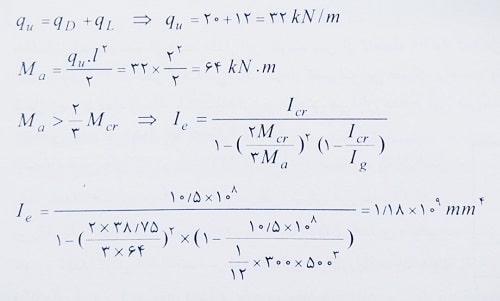 q_u = q_D + q_L ⇒ q_u = ۲۰ + ۱۲ = ۳۲ kN/m
M_a = \frac{q_u . l^۲}{۲} = ۳۲ × \frac{۲^۲}{۲} = ۶۴ kN.m
M_a > \frac{۲}{۳} M_{cr} ⇒ I_e = \frac{I_{cr}}{۱ - (\frac{۲M_{cr}}{۳M_a})^۲ (۱ - \frac{I_{cr}}{I_g})}
I_e = \frac{۱۰/۵ × ۱۰^۸}{۱ - (\frac{۲ × ۳۸/۷۵}{۳ × ۶۴})^۲ × (۱ - \frac{۱۰/۵ × ۱۰^۸}{\frac{۱}{۱۲} × ۳۰۰ × ۵۰۰^۳})} = ۱/۱۸ × ۱۰^۹ mm^۴